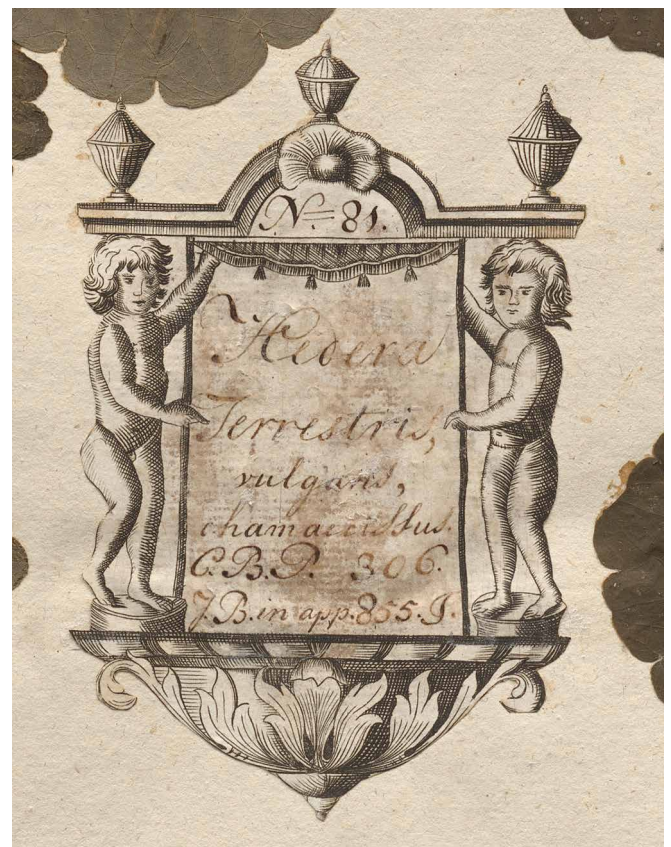 N= 81.
Hedera
Terrestris,
vulgaris,
chamaecissus.
C.B.P. 306.
J.B. in app. 855. J.